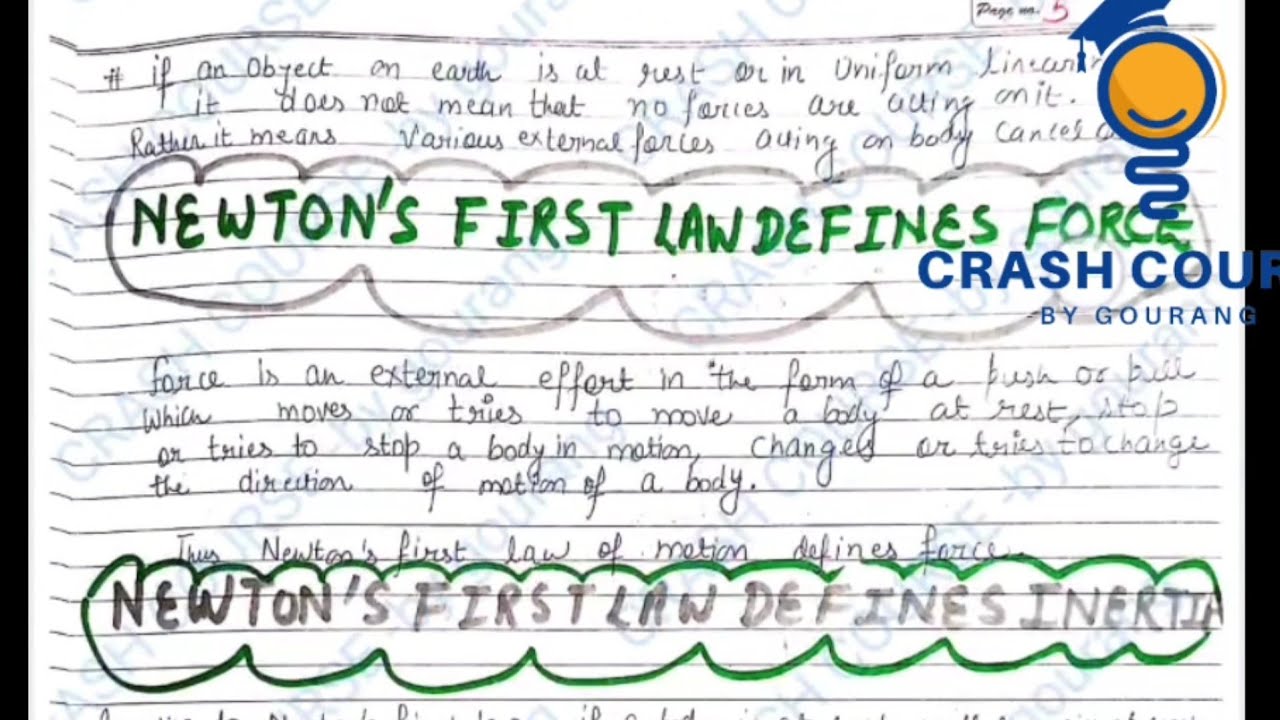 Page no. 5
# if an object on earth is at rest or in Uniform linear
it does not mean that no forces are acting on it.
Rather it means various external forces acting on body cancel
NEWTON'S FIRST LAW DEFINES FORCE
CRASH COUR
-BY GOURANG
force is an external effort in the form of a push or pull
which moves or tries to move a body at rest, stop
or tries to stop a body in motion, changes or tries to change
the direction of motion of a body.
Thus Newton's first law of motion defines force.
NEWTON'S FIRST LAW DEFINES INERTIA